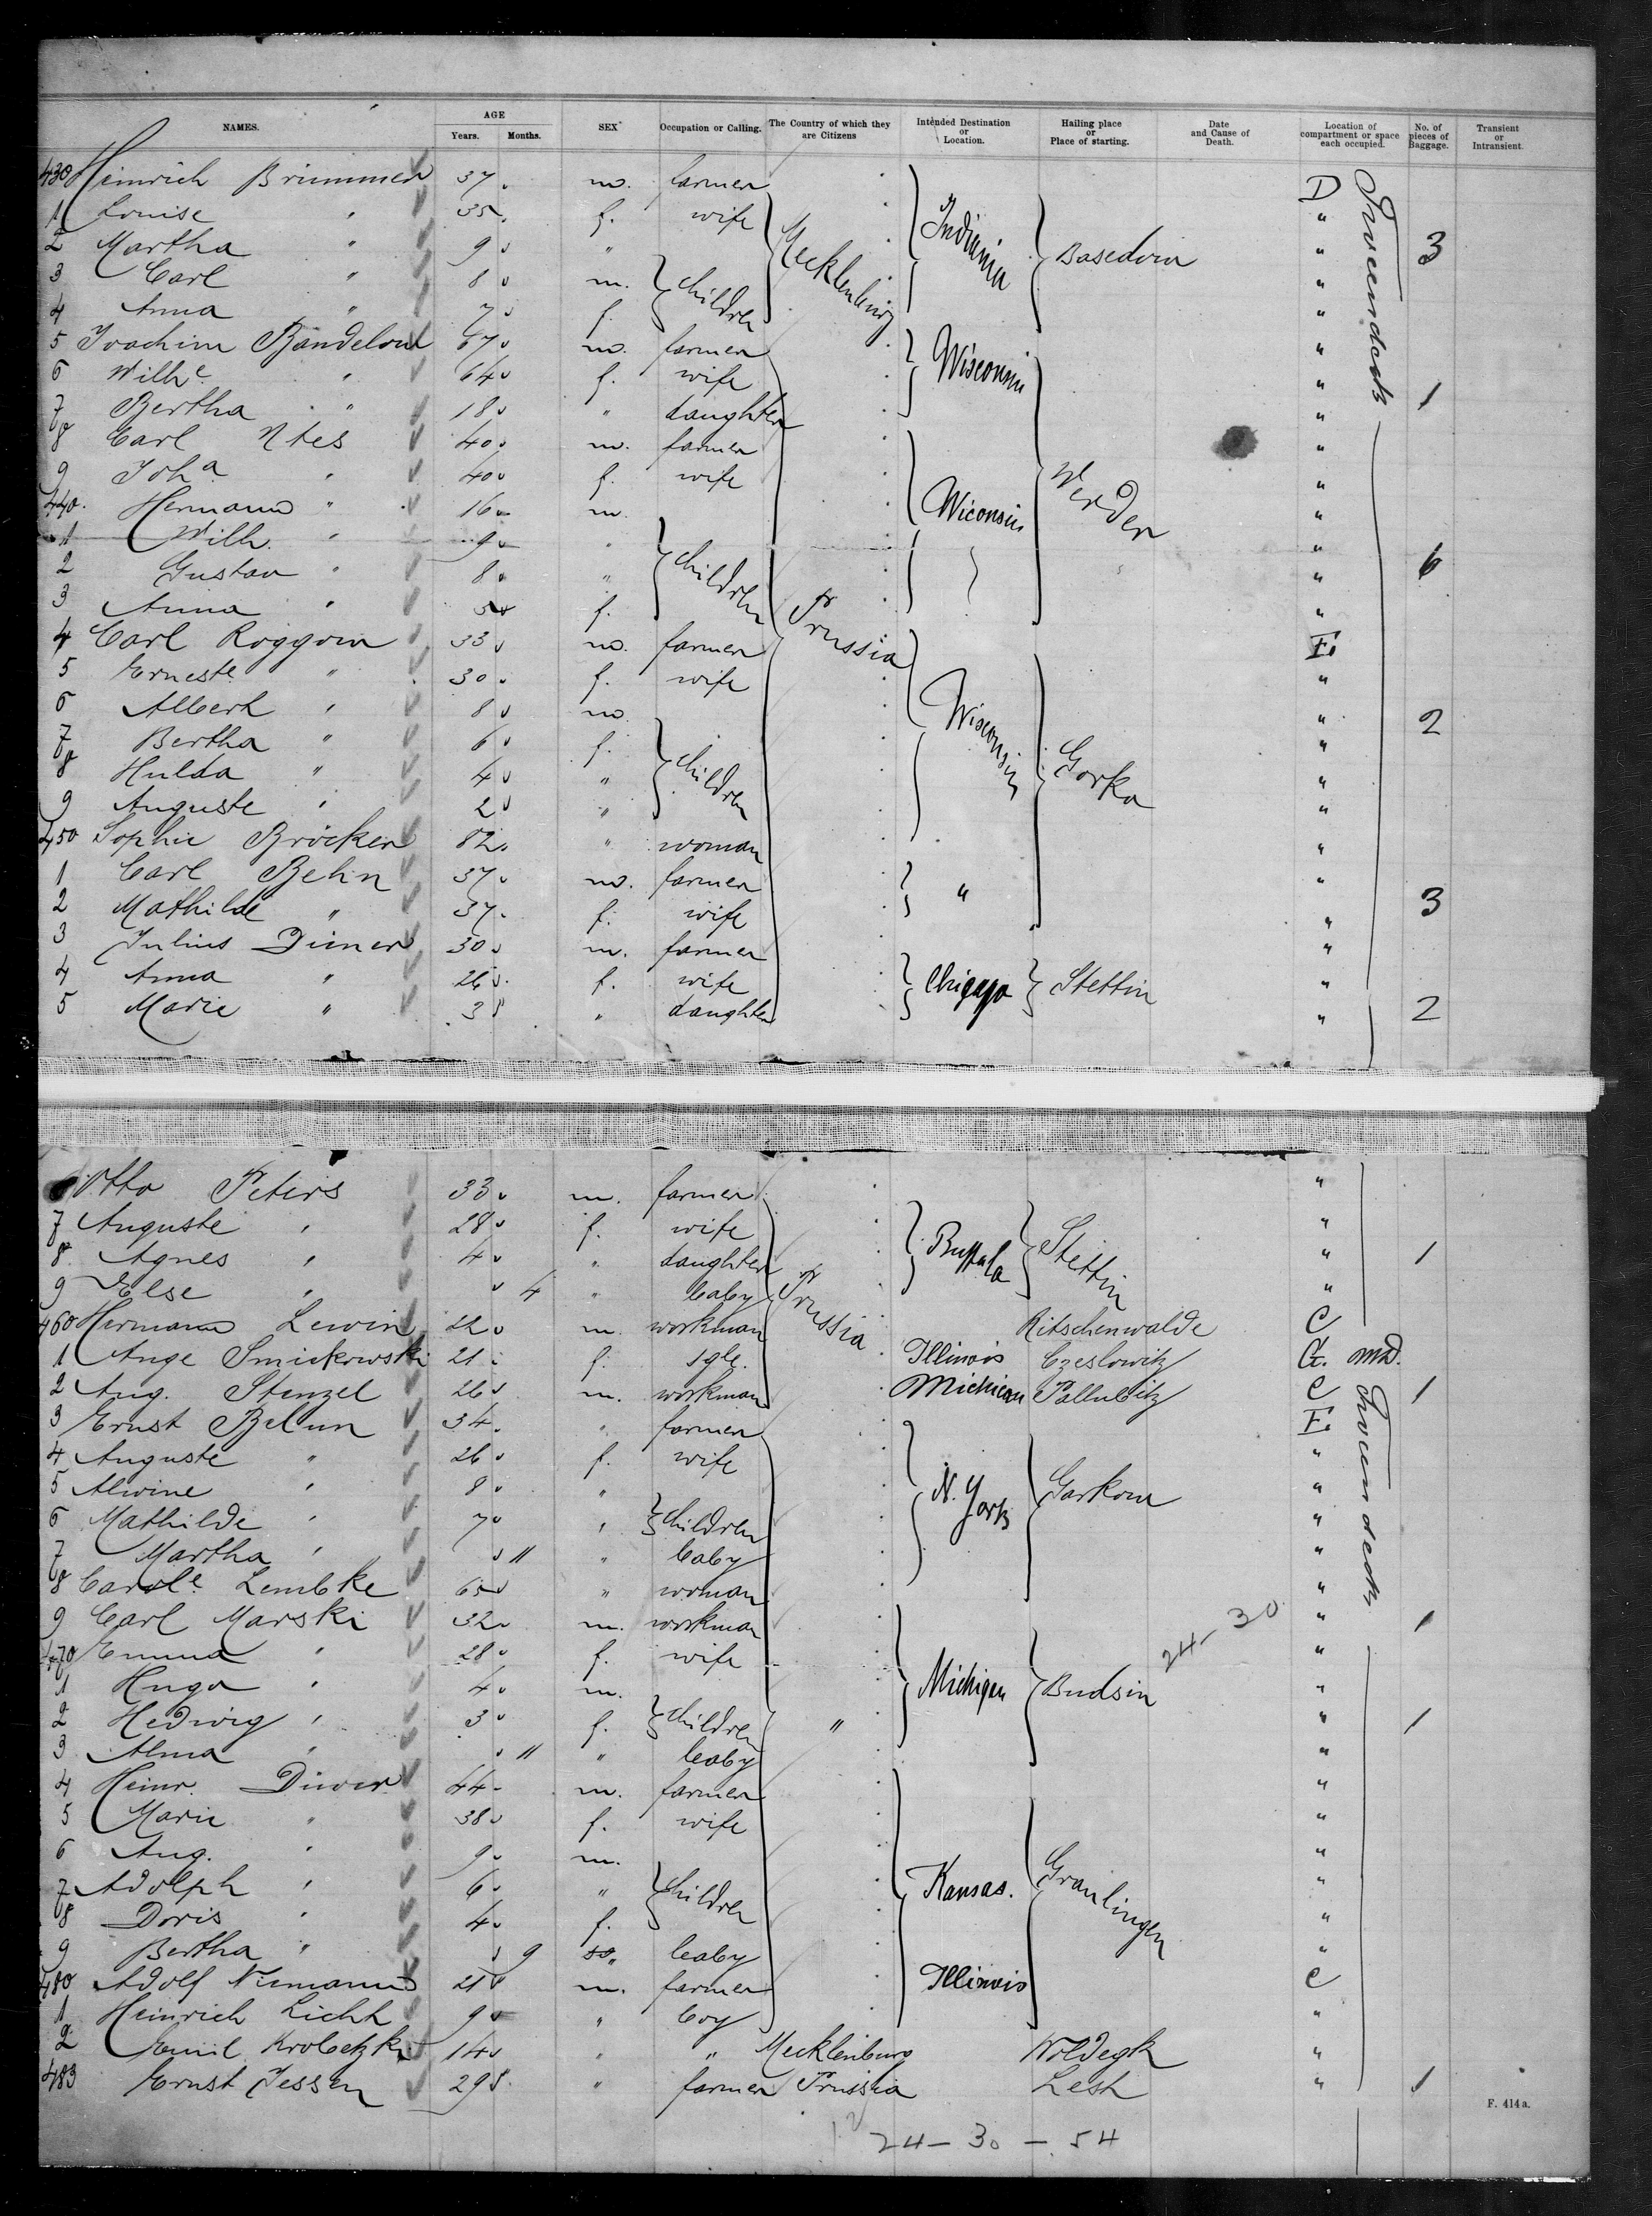 NAMES. AGE Years. Months. SEX Occupation or Calling. The Country of which they are Citizens Intended Destination or Location. Hailing place or Place of starting. Date and Cause of Death. Location of compartment or space each occupied. No. of pieces of Baggage. Transient or Intransient.
430 Heinrich Brümmer 37 m. farmer D
1 Louise " 35 f. wife "
2 Martha " 9 " Mecklenburg Indiana Basedow " 3
3 Carl " 8 m. children "
4 Anna " 7 f. "
5 Joachim Bandelow 67 m. farmer "
6 Wilhe " 64 f. wife Wisconsin "
7 Bertha " 18 " daughter " 1
8 Carl 40 m. farmer "
9 Joha " 40 f. wife "
440. Hermann " 16 m. Wiconsin Werder "
1 Wilh. " 9 " "
2 Gustav " 8 " children " 6
3 Anna " 5 f. Prussia "
4 Carl Roggow 33 m. farmer E.
5 Erneste " 30 f. wife "
6 Albert " 8 m Wisconsin " 2
7 Bertha " 6 f. "
8 Hulda " 4 " children Gorka "
9 Auguste " 2 " "
450 Sophie Bröcker 82 " woman "
1 Carl Behn 37 m. farmer " "
2 Mathilde " 37 f. wife " 3
3 Julius Diener 30 m. farmer "
4 Anna " 26 f. wife Chicago Stettin "
5 Marie " 3 " daughter " 2
Tweendeck
Otto Peters 33 m. farmer "
7 Auguste " 28 f. wife "
8 Agnes " 4 " daughter Buffalo Stettin " 1
9 Else " 4 " baby Prussia "
460 Hermann Lewin 22 m. workman Ritschenwalde C
1 Auge Smickowski 21 f. sgle. Illinois Czeslowitz G. md.
2 Aug. Stenzel 26 m. workman Michican Pallubitz C 1
3 Ernst Belun 34 " farmer E.
4 Auguste " 26 f. wife "
5 Alwine " 8 " N. York Garkow "
6 Mathilde " 7 " children "
7 Martha " 11 " baby "
8 Carole Lembke 65 " woman "
9 Carl Marski 32 m. workman 24-30 " 1
470 Emma " 28 f. wife "
1 Hugo " 4 m. Michigan Budsin "
2 Hedwig " 3 f. children " " 1
3 Alma " 11 " baby "
4 Heinr. Diwer 44 m. farmer "
5 Marie " 38 f. wife "
6 Aug. " 9 m. "
7 Adolph " 6 " children Kansas. Graulingen "
8 Doris " 4 f. "
9 Bertha " 9 " baby "
480 Adolf Niemann 21 m. farmer Illinois C
1 Heinrich Licht 9 " boy "
2 Emil Krobetzki 14 " " Mecklenburg Woldegk "
483 Ernst Jessen 29 " farmer Prussia Lesh " 1
Tweendeck
F. 414a.
24-30-54